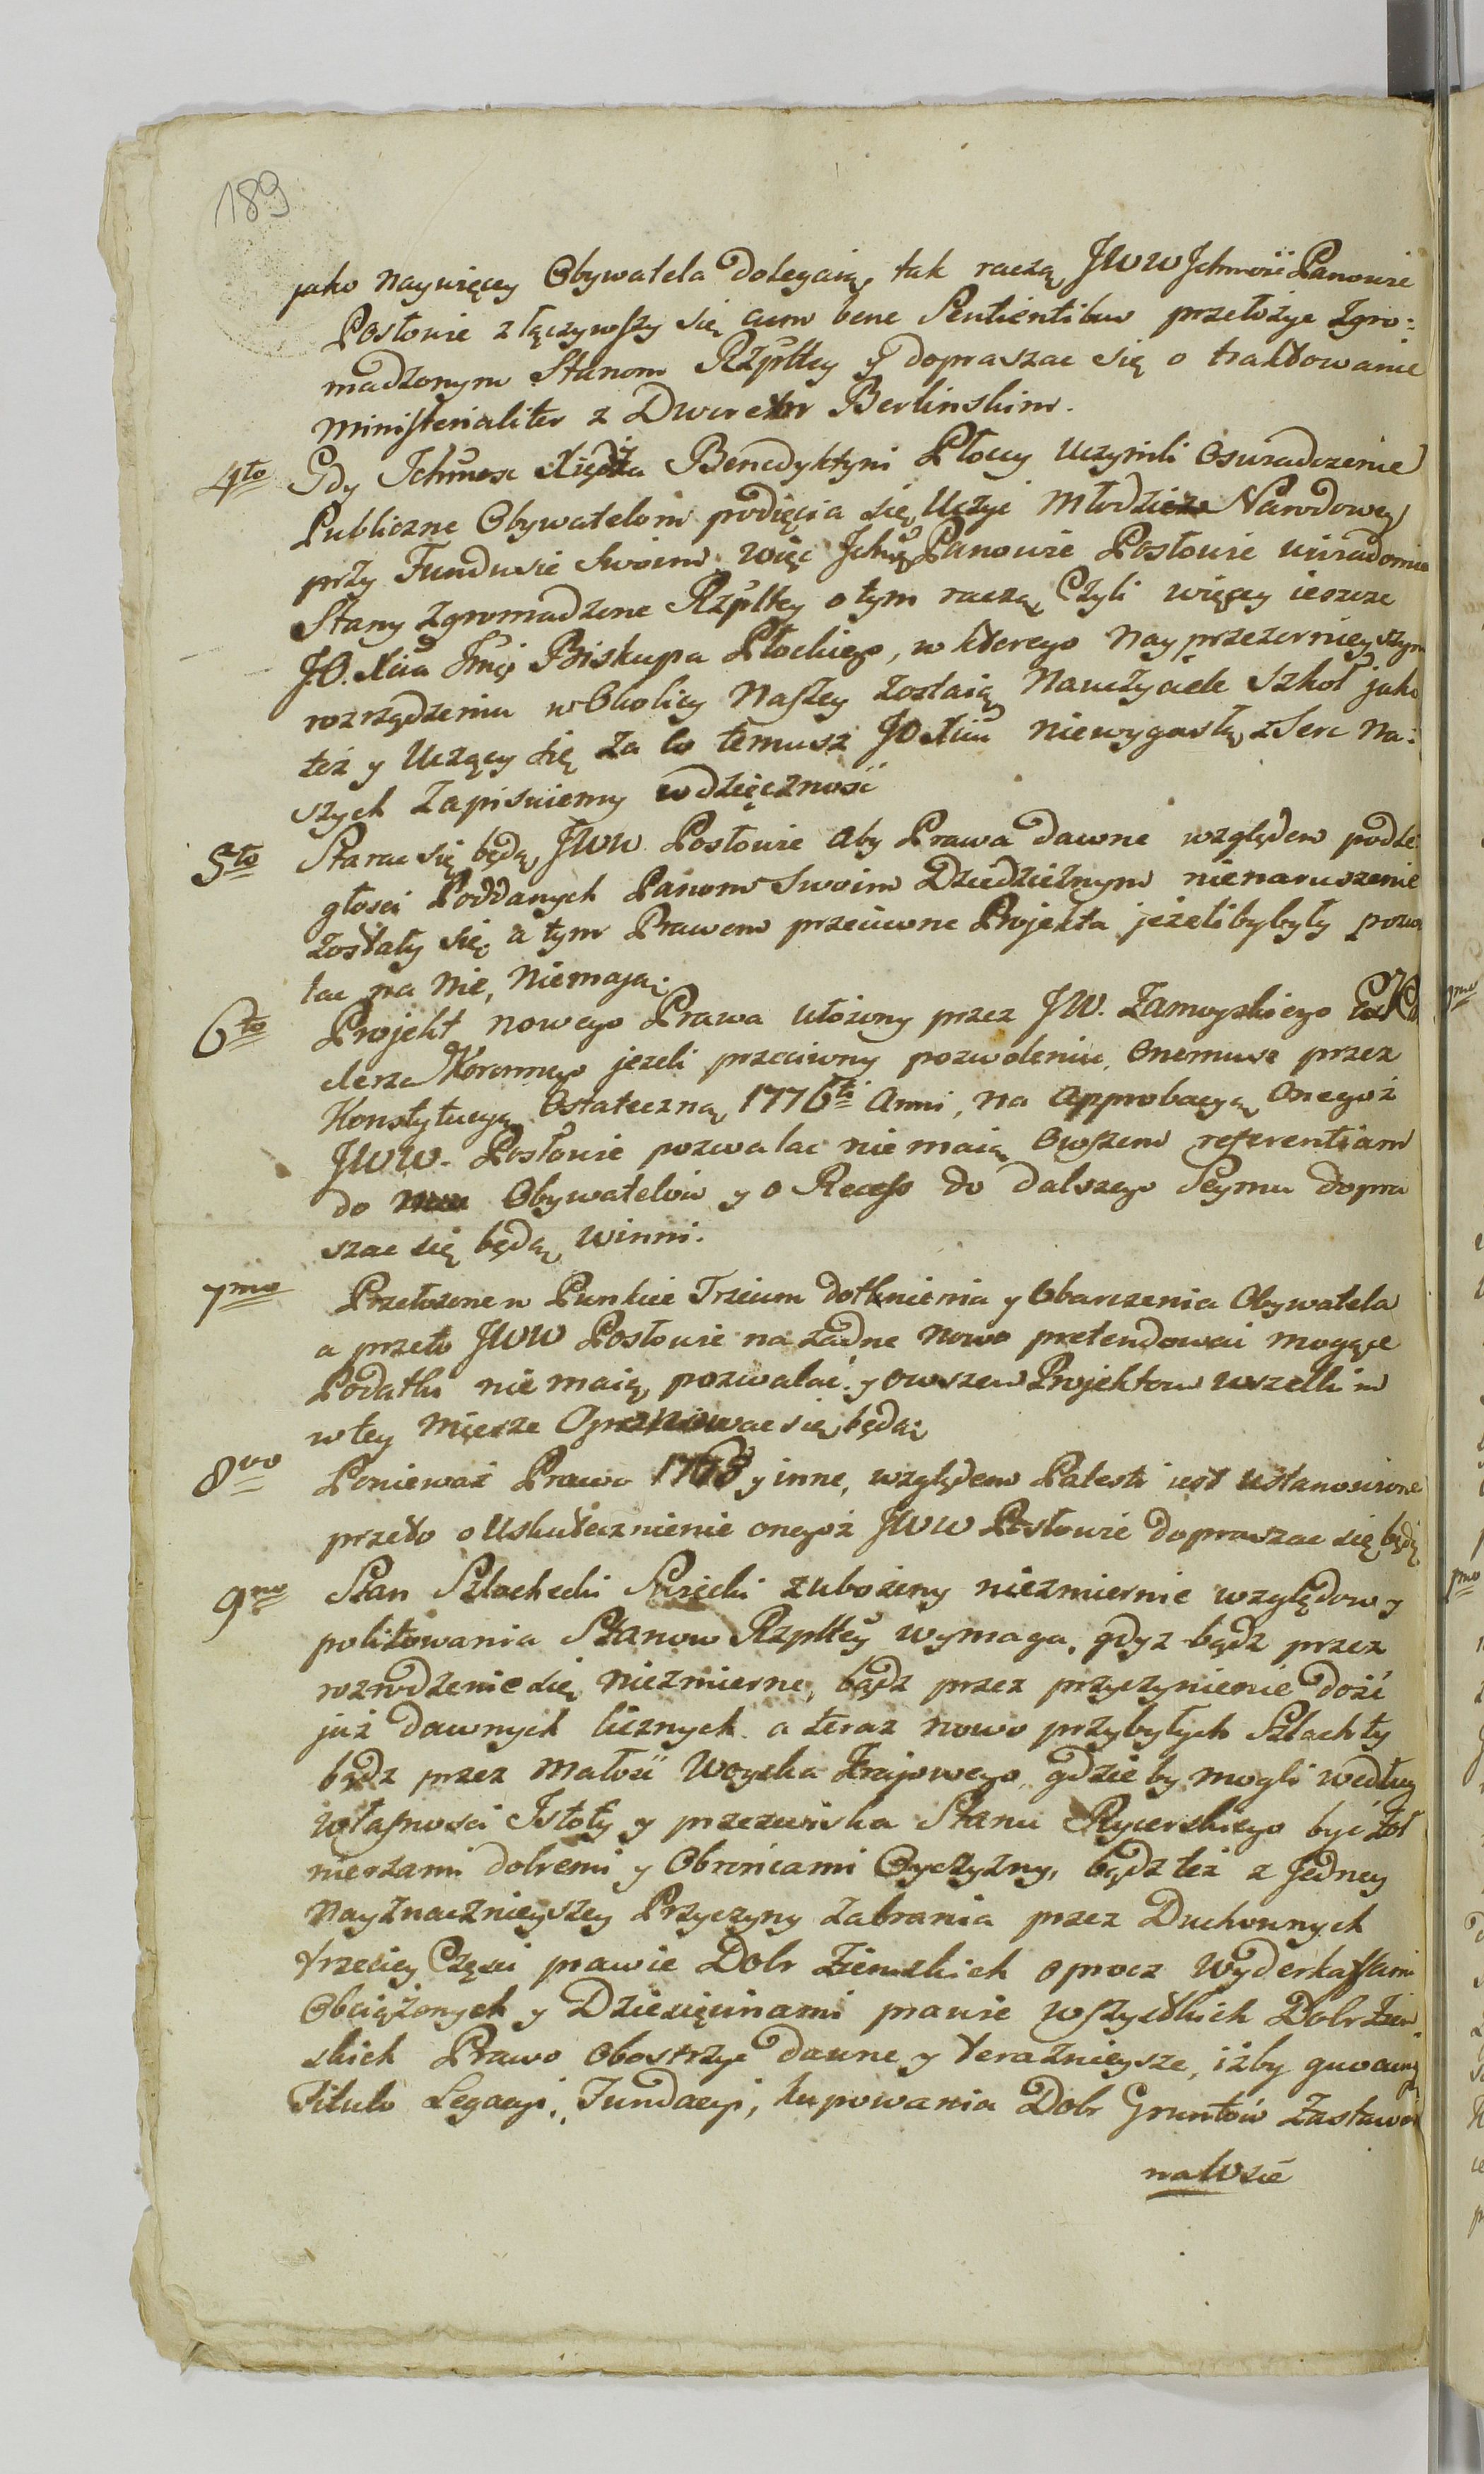 189
jako naywięcey Obywatela dolegaią, tak raczą JWW Ichmość Panowie
Posłowie złączywszy się cum bene Sentientibus przełożyc Zgro:
madzonym Stanom Rzpltey y dopraszac się o traktowanie
ministerialiter z Dworem Berlinskim.
4to Gdy Ichmosc Xięża Benedyktyni Płoccy uczynili Oswiadczenie
Publiczne Obywatelom podięcia się Uczyc Młodzież Narodowey
przy Fundusie Swoim, więc Ichmć Panowie Posłowie uwiadomic
Stany Zgromadzone Rzpltey o tym raczą, Czyli więcey ieszcze
J.O. Xcia Jmci Biskupa Płockiego, w ktorego nayprzezornieyszym
rozrządzeniu w Okolicy Naszey zostaią Nauczyciele Szkoł jako
też y Uczący się za to temusz JO Xciu niewygasłą z Serc Na:
szych Zapisuiemy wdzięczność
5to Starac się będą JWW Posłowie aby Prawa dawne względem podle
głosci Poddanych Panom Swoim Dziedzicznym nienaruszenie
zostały się, a tym Prawem przeciwne Projekta jeżeliby były pozwa
lac na nie, niemają.
6to Projekt nowego Prawa ułożony przez JW. Zamoyskiego Exkan
clerza Koronnego jeżeli przeciwny pozwoleniu onemuse przez
Konstytucyą Ostateczną 1776ti Anni, na Approbacyą Onegoż
JWW. Posłowie pozwalac nie maią Owszem referentiam
do Obywatelów y o Recess do dalszego Seymu dopra
szac się będą winni.
7mo Przełożone w Punkcie Trzecim dotknienia y Obarczenia Obywatela
a przeto JWW Posłowie na żadne nowo pretendowai mogące
Podatki nie maią pozwalać. y owszem Projektom wszelkim
w tey mierze Oponowac się będą
8vo Ponieważ Prawo 1768 y inne, względem Palestr iest ustanowione
przeto o Uskutecznienie onegoż JWW Posłowie dopraszac się będą
9no Stan Szlachecki Swiecki zubożony niezmiernie względow y
politowania Stanow Rzpltey wymaga, gdyz bądz przez
rozrodzenie się niezmierne, bądz przez przyczynienie dość
już dawnych licznych a teraz nowo przybyłych Szlachty
bądz przez małość Woyska Krajowego gdzie by mogli według
własnosci Istoty y przezwiska Stanu Rycerskiego być Żoł
nierzami dobremi y Obrońcami Oyczyzny, bądz też z Jedney
Nayznacznieyszey Przyczyny zabrania przez Duchownych
trzeciey Częsci prawie Dobr Ziemskich oprocz Wyderkaffami
Obciążonych y Dziesięcinami prawie wszystkich Dobr Ziem
skich Prawo Obostrzyc dawne y terazniejsze, iżby quovis
Titulo Legacyi, Fundacyi, kupowania Dobr Gruntów Zastawow
na Wsie